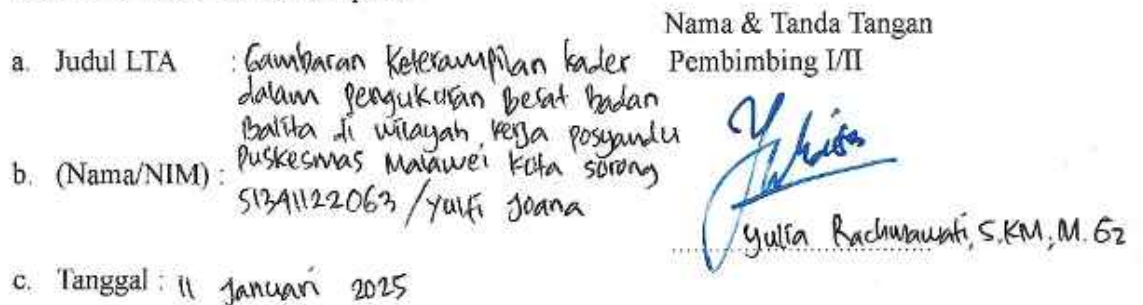 Nama & Tanda Tangan
Pembimbing I/II
a. Judul LTA : Gambaran Keterampilan kader
dalam pengukuran Berat Badan
Balita di wilayah kerja posyandu
Puskesmas Malawei Kota sorong
b. (Nama/NIM) :
51341122063 / Yulfi Joana
Yulia Rachmawati, S.KM, M.Gz
c. Tanggal : 11 Januari 2025